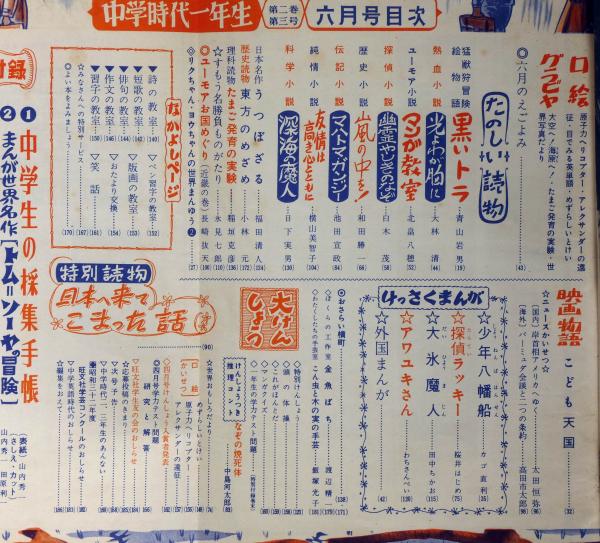 中学時代一年生 第二巻第三号 六月号目次
口絵グラビヤ
原子力ヘリコプター・アレクサンダーの遠
征・目でみる英単語・めずらしいとけい
大空へ!海原へ!・たまご発育の実験・世
界写真だより
◎六月のえごよみ (43)
たのしい読物
猛獣狩冒険絵物語 黒いトラ 青山岩男 (19)
熱血小説 光よわが胸に 大林清 (44)
ユーモア小説 マンガ教室 北畠八穂 (52)
探偵小説 幽霊やしきのなぞ 白木茂 (58)
歴史小説 嵐の中を! 和田勝一 (68)
伝記小説 マハトマ・ガンジー 池田宣政 (84)
純情小説 友情は高き心とともに 横山美智子 (104)
科学小説 深海の魔人 日下実男 (130)
日本名作 うつぼざる 福田清人 (124)
歴史読物 東方のめざめ 小林元 (172)
理科読物 たまご発育の実験 稲垣克彦 (136)
☆すもう名勝負ものがたり 氷見七郎 (110)
◎ユーモアお国めぐり(近畿の巻) 長崎抜天 (100)
◎リクちゃん・ヨウちゃんの世界まんゆう② (27)
なかよしページ
▽詩の教室 (140)
▽短歌の教室 (142)
▽俳句の教室 (144)
▽作文の教室 (146)
▽習字の教室 (150)
▽ペン習字の教室 (152)
▽版画の教室 (153)
▽おたより交換 (154)
▽笑話 (161)
☆みなさんへの特別サービス (167)
◎よい本をよみましょう (170)
付録
① 中学生の採集手帳
② まんが世界名作[トム=ソーヤの冒険]
映画物語 こども天国 (32)
☆ニュースかいせつ☆
[国内]岸首相アメリカへゆく 太田恒弥 (96)
[海外]バーミューダ会談と二つの条約 高田市太郎 (98)
けっさくまんが
☆少年八幡船 カゴ直利 (35)
☆探偵ラッキー 桜井はじめ (75)
☆大氷魔人 田中ちかお (115)
☆アワユキさん わちさんぺい
☆外国まんが (42)
◎おさらい横町 (138)
ぼくらの工作室 金魚ばち 渡辺精一 (179)
◇わたくしたちの手芸室 こん虫と木の実の手芸 飯塚光子 (171)
大けんしょう
◇特別けんしょう
◇頭の体操
◇これがほんとだ
◇マンガクイズ
◇一年生の学力テスト問題
けんしょうつき推理コント なぞの焼死体 中島河太郎
特別読物
日本へ来てこまった話 (90)
☆世界おもしろだより
口絵かいせつ めずらしいとけい
原子力ヘリコプター
アレクサンダーの遠征
☆四月号けんしょう入賞者発表
◎四月号学力テスト問題 研究と解答
▽旺文社学生友の会のおしらせ
◆応募原稿のきまり
▽中学時代二、三年生のあんない
☆次号予告
●昭和三十二年度
旺文社学芸コンクールのおしらせ
▽中学英語時代のおしらせ
☆編集をおえて
表紙・山内秀一
さしえ・カット
山内秀一 田原利